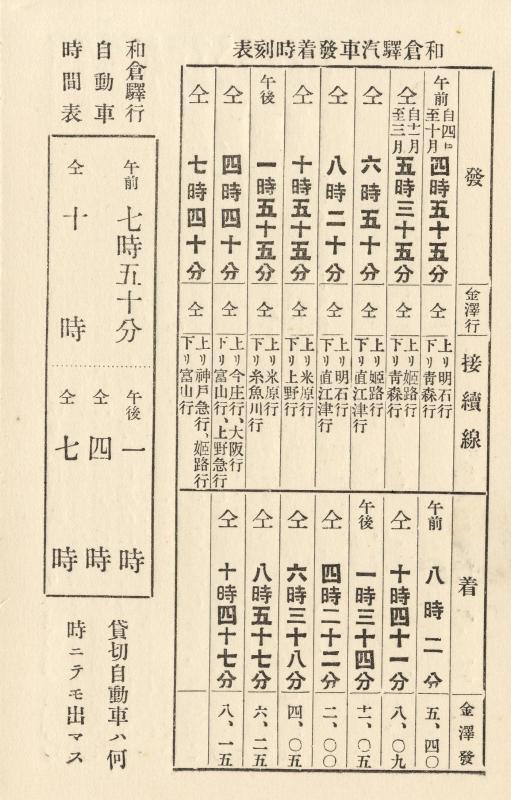 和倉驛汽車發着時刻表
發 金澤行 接續線
午前 自四月至十月 四時五十五分 仝 上リ明石行 下リ青森行
仝 自十一月至三月 五時三十五分 仝 上リ姬路行 下リ青森行
仝 六時五十分 仝 上リ姬路行 下リ直江津行
仝 八時二十分 仝 上リ明石行 下リ直江津行
仝 十時五十五分 仝 上リ米原行 下リ上野行
午後 一時五十五分 仝 上リ米原行 下リ糸魚川行
仝 四時四十分 仝 上リ今庄行、大阪行 下リ富山行、上野急行
仝 七時四十分 仝 上リ神戸急行、姬路行 下リ富山行
着 金澤發
午前 八時二分 五、四〇
仝 十時四十一分 八、〇九
午後 一時三十四分 十一、〇五
仝 四時二十二分 二、〇〇
仝 六時三十八分 四、〇五
仝 八時五十七分 六、二五
仝 十時四十七分 八、一五
和倉驛行
自動車
時間表
午前 七時五十分
仝 十時
午後 一時
仝 四時
仝 七時
貸切自動車ハ何
時ニテモ出マス